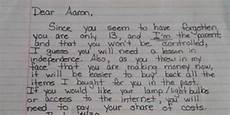 Dear Aaron,
Since you seem to have forgotten
you are only 13, and I'm the "parent"
and that you won't be controlled,
I guess you will need a lesson in
independence. Also, as you threw in my
face that you are making money now,
it will be easier to buy back all the
items I bought for you in the past.
If you would like your lamp/lightbulbs
or access to the internet, you will
need to pay your share of costs.